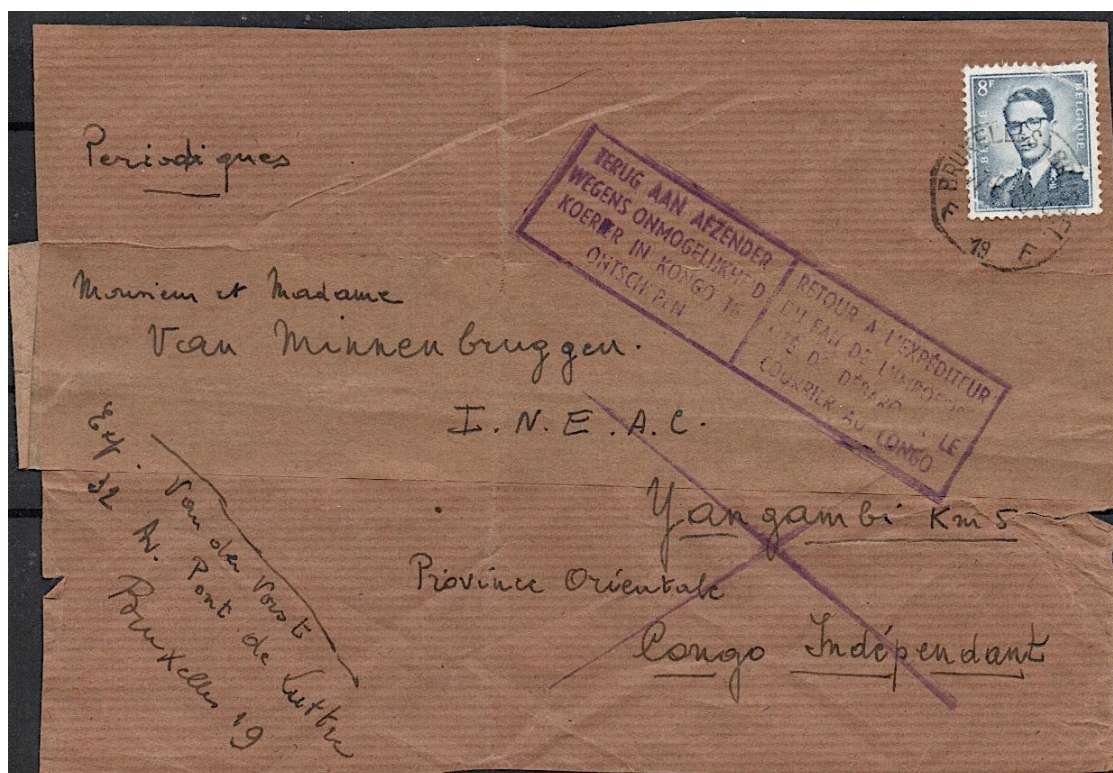 Periodiques
8F
BELGIE BELGIQUE
BRUXELLES
19 F
TERUG AAN AFZENDER
WEGENS ONMOGELIJKHEID
KOERIER IN KONGO TE
ONTSCHEPEN
RETOUR A L'EXPÉDITEUR
DU FAIT DE L'IMPOSSIBI
LITÉ DE DÉBARQUER LE
COURRIER AU CONGO
Monsieur et Madame
Van Minnenbruggen.
I. N. E. A. C.
Yangambi Km 5
Province Orientale
Congo Indépendant
Exp. Van der Vorst
32 Av. Pont de Luttre
Bruxelles 19